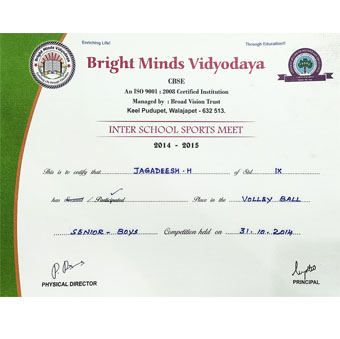 Enriching Life!
Through Education!!
Bright Minds Vidyodaya
CBSE
An ISO 9001 : 2008 Certified Institution
Managed by : Broad Vision Trust
Keel Pudupet, Walajapet - 632 513.
INTER SCHOOL SPORTS MEET
2014 - 2015
This is to certify that JAGADEESH.H of Std. IX
has / Participated Place in the VOLLEY BALL
SENIOR - BOYS Competition held on 31.10.2014
PHYSICAL DIRECTOR
PRINCIPAL